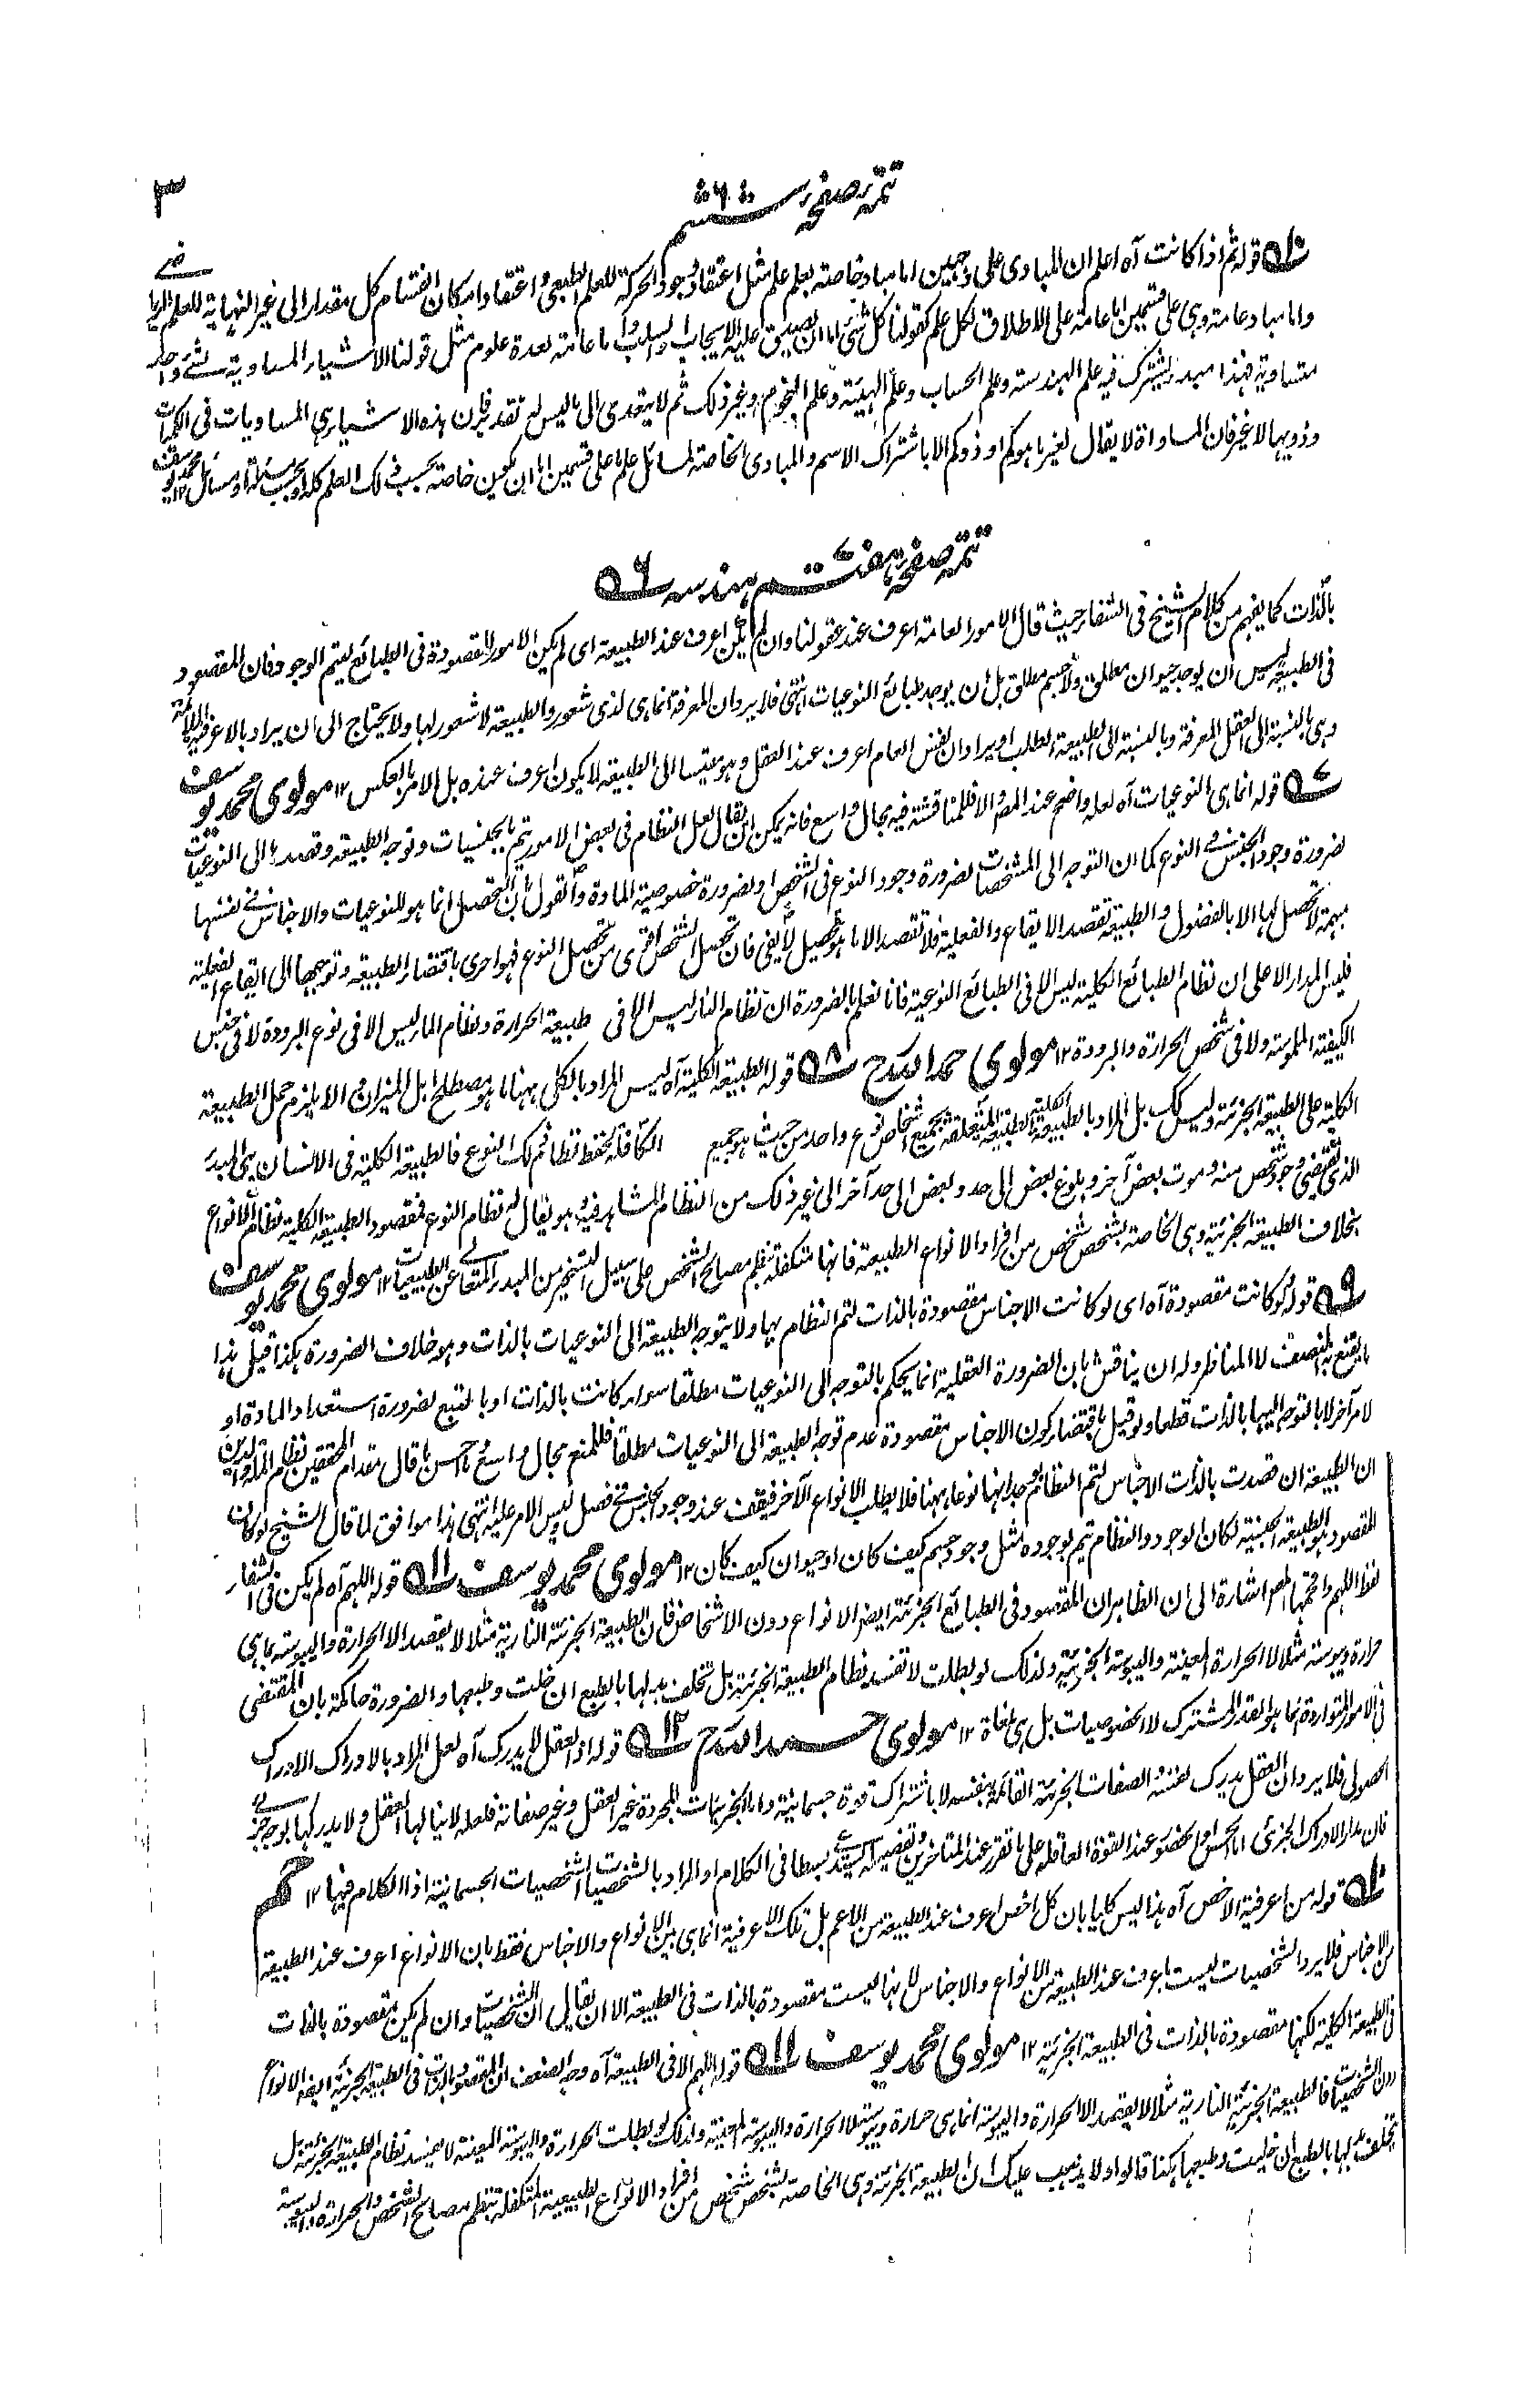 ٣
تتمہ صفحہ ششم ٦
قوله ثم اذا كانت آه اعلم ان المبادى على وجهين اما مباد خاصة بعلم علم مثل اعتقاد وجود الحركة للعلم الطبعى واعتقاد امكان انقسام كل مقدار الى غير النهاية للعلم الرياضے
واما مباد عامة وهى على قسمين اما عامة على الاطلاق لكل علم كقولنا كل شئ اما ان يصدق عليه الايجاب او السلب واما عامة لعدة علوم مثل قولنا الاشياء المساوية لشئ واحد
متساوية فهذا مبدء يشترك فيه علم الهندسة وعلم الحساب وعلم الهيئة وعلم النجوم وغير ذلك ثم لا يتعدى الى ما ليس له تقدير فان هذه الاشياء هى المساويات فى الكميات
وذويها لا غير فان المساواة لا يقال لغير ما هو كم او ذو كم الا باشتراك الاسم والمبادى الخاصة لمسائل علم ما على قسمين اما ان يكون خاصة بحسب ذلك العلم كله او بحسب مسئلة او مسائل ١٢ محمد يوسف
تتمہ صفحہ ہفتم ہندسہ
بالذات كما يفهم من كلام الشيخ فى الشفا حيث قال الامور العامة اعرف عند عقولنا وان لم يكن اعرف عند الطبيعة اى لم يكن الامور المقصودة فى الطبائع لتيم الوجود فان المقصود
فى الطبيعة ليس ان يوجد حيوان مطلق ولا جسم مطلق بل ان يوجد طبائع النوعيات انتهى فلا يرد ان المعرفة انما هى لذى شعور والطبيعة لا شعور لها ولا يحتاج الى ان يراد بالاعرفية
وهى بالنسبة الى العقل المعرفة وبالنسبة الى الطبيعة الطلب او يراد ان نفس العام اعرف عند العقل وهو مقيسا الى الطبيعة لا يكون اعرف عنده بل الامر بالعكس ١٢ مولوى محمد يوسف
قوله انما هى النوعيات آه لعله واضح عند المص والا فللمناقشة فيه مجال واسع فانه يمكن ان يقال لعل النظام فى بعض الامور يتم بالجنسيات وتوجه الطبيعة وقصدها الى النوعيات
لضرورة وجود الجنس فے النوع كما ان التوجه الى المشخصات لضرورة وجود النوع فى الشخص او لضرورة خصوصية المادة والقول بان التحصل انما هو للنوعيات والاجناس فے نفسها
مبهمة لا تحصل لها الا بالفصول والطبيعة تقصد الايقاع والفعلية فلا تقصد الا ما هو تحصيل لا يفى فان تحصل الشخص اقوى من تحصيل النوع فهو احرى باقتضاء الطبيعة وتوجهها الى ايقاع الفعلية
فليس المدار الا على ان نظام الطبائع الكلية ليس الا فى الطبائع النوعية فانا نعلم بالضرورة ان نظام النار ليس الا فى طبيعة الحرارة ونظام الماء ليس الا فى نوع البرودة لا فى جنس
الكيفية الملموسة ولا فى شخص الحرارة والبرودة ١٢ مولوى حمد الله رح ٨ قوله الطبيعة الكلية آه ليس المراد بالكلى ههنا ما هو مصطلح اهل الميزان والا يلزم حمل الطبيعة
الكلية على الطبيعة الجزئية وليس كك بل المراد بالطبيعة الكلية الطبيعة المتعلقة بجميع اشخاص نوع واحد من حيث هو جميع الكافلة لحفظ نظام ذلك النوع فالطبيعة الكلية فى الانسان هى المبدء
الذى يقتضى وجود شخص منه وموت بعض آخر وبلوغ بعض الى حد وبعض الى حد آخر الى غير ذلك من النظام المشاهد فيه وهو يقال له نظام النوع فمقصود الطبيعة الكلية نظام الانواع
بخلاف الطبيعة الجزئية وهى الخاصة بشخص شخص من افراد الانواع الطبيعية فانها متكفلة بنظم مصالح الشخص على سبيل التسخير من المبدء المتعالى عن الطبيعيات ١٢ مولوى محمد يوسف
٩ قوله لو كانت مقصودة آه اى لو كانت الاجناس مقصودة بالذات لتم النظام بها ولا يتوجه الطبيعة الى النوعيات بالذات وهو خلاف الضرورة هكذا قيل هذا
ما يقنع به المنصف لا المناظر وله ان يناقش بان الضرورة العقلية انما يحكم بالتوجه الى النوعيات مطلقا سواء كانت بالذات او بالتبع لضرورة استعداد المادة او
لامر آخر لا بالتوجه اليها بالذات قطعا ولو قيل باقتضاء كون الاجناس مقصودة عدم توجه الطبيعة الى النوعيات مطلقا فللمنع مجال واسع واحسن ما قال مقدام المحققين نظام الملة والدين
ان الطبيعة ان قصدت بالذات الاجناس لتم النظام بوجدانها نوعا ههنا فلا يطلب الانواع الآخر فيقف عند وجود الجنس فے فصل وليس الامر عليه انتهى هذا موافق لما قال الشيخ لو كان
المقصود هو الطبيعة الجنسية لكان الوجود والنظام تيم بوجوده مثل وجود جسم كيف كان او حيوان كيف كان ١٢ مولوى محمد يوسف قوله اللهم آه لم يكن فى الشفا
لفظ اللهم واقحمها المص اشارة الى ان الظاهر ان المقصود فى الطبائع الجزئية ايضا الانواع دون الاشخاص فان الطبيعة الجزئية النارية مثلا لا يقصد الا الحرارة واليبوسة بما هى
حرارة ويبوسة مثلا لا الحرارة المعينة واليبوسة الجزئية ولذلك لو بطلت لا تفسد نظام الطبيعة الجزئية بل تخلف بدلها بالطبع ان خليت وطبعها والضرورة حاكمة بان المقتضى
فى الامور المتواردة انما هو القدر المشترك لا الخصوصيات بل هى ملغاة ١٢ مولوى حمد الله رح ١٢ قوله اذ العقل لا يدرك آه لعل المراد بالادراك الادراك
الحصولى فلا يرد ان العقل يدرك نفسه والصفات الجزئية القائمة بنفسه لا باشتراك قوة جسمانية واما الجزئيات المجردة غير العقل وغير صفاته فلعله لا ينالها العقل ولا يدركها بوجه جزئے
فان مدار الادراك الجزئى اما الحس او الحضور عند القوة العاقلة على ما تقرر عند المتاخرين وتفصيله يستدعے بسطا فى الكلام او المراد بالشخصيات الشخصيات الجسمانية اذ الكلام فيها ١٢
قوله من اعرفية الاخص آه هذا ليس كليا بان كل اخص اعرف عند الطبيعة من الاعم بل تلك الاعرفية انما هى بين الانواع والاجناس فقط بان الانواع اعرف عند الطبيعة
من الاجناس فلا يرد الشخصيات ليست باعرف عند الطبيعة من الانواع والاجناس لانها ليست مقصودة بالذات فى الطبيعة الا ان يقال ان الشخصيات وان لم يكن مقصودة بالذات
فى الطبيعة الكلية لكنها مقصودة بالذات فى الطبيعة الجزئية ١٢ مولوى محمد يوسف قوله اللهم الا فى الطبيعة آه وجه الضعف ان المقصود بالذات فى الطبيعة الجزئية ايضا الانواع
دون الشخصيات فالطبيعة الجزئية النارية مثلا لا يقصد الا الحرارة واليبوسة انما هى حرارة ويبوسة لا الحرارة واليبوسة المعينة ولذلك لو بطلت الحرارة واليبوسة المعينة لا يفسد نظام الطبيعة الجزئية بل
تخلف بدلها بالطبع ان خليت وطبعها هكذا قالوا ولا يذهب عليك ان الطبيعة الجزئية وهى الخاصة بشخص شخص من افراد الانواع الطبيعية المتكفلة بنظم مصالح الشخص والحرارة واليبوسة